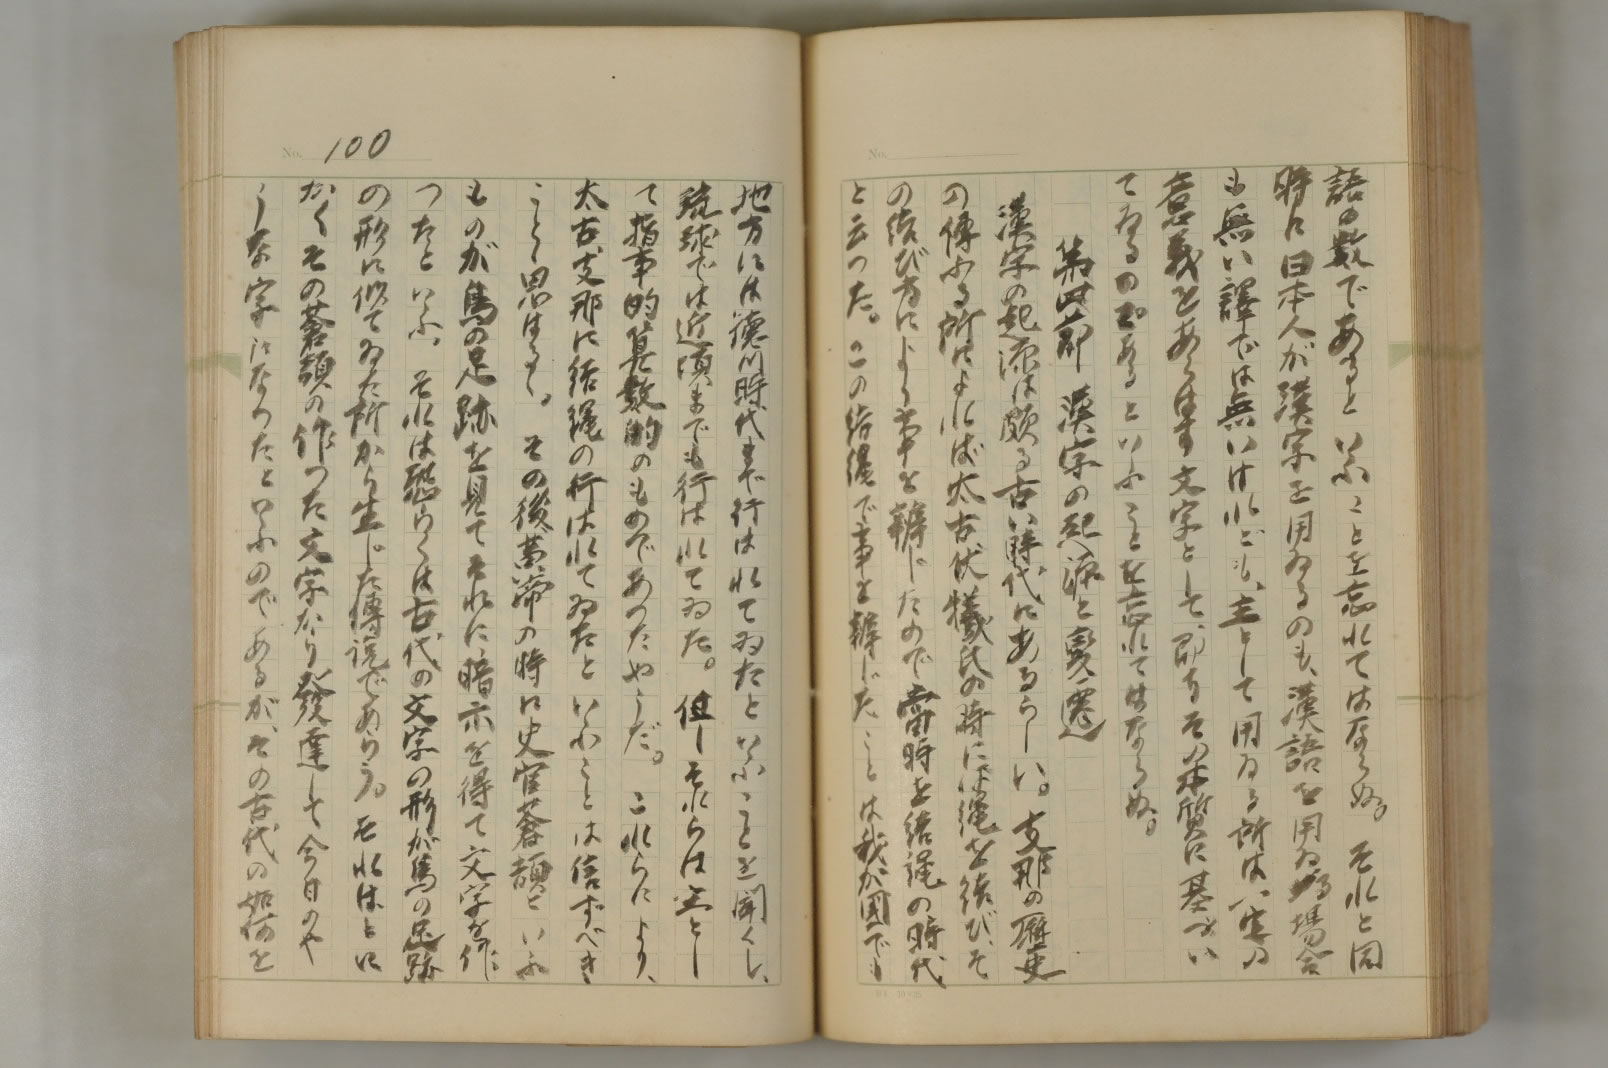 語の数であるといふことを忘れてはならぬ。それと同
時に日本人が漢字を用ゐるのも、漢語を用ゐる場合
も無い譯では無いけれども、主として用ゐる所は一定の
意義をあらはす文字として、即ちその本質に基づい
てゐるのであるといふことを忘れてはならぬ。
第四節 漢字の起源と變遷
漢字の起源は頗る古い時代にあるらしい。支那の歴史
の傳ふる所によれば太古伏犠氏の時には縄を結び、そ
の結び方により事を辨じたので當時を結縄の時代
と云つた。この結縄で事を辨じたことは我が国でも
No.
No. 100
地方には徳川時代まで行はれてゐたといふことを聞くし、
琉球では近頃までも行はれてゐた。但しそれらは主とし
て指事的算数的のものであつたやうだ。これらにより、
太古支那に結縄の行はれてゐたといふことは信ずべき
ことゝ思はるゝ。その後黄帝の時に史官蒼頡といふ
ものが鳥の足跡を見てそれに暗示を得て文字を作
つたといふ。それは恐らくは古代の文字の形が鳥の足跡
の形に似てゐた所から生じた傳説であらう。それはとに
かくその蒼頡の作つた文字なり發達して今日のや
うな字になつたといふのであるが、その古代の如何を